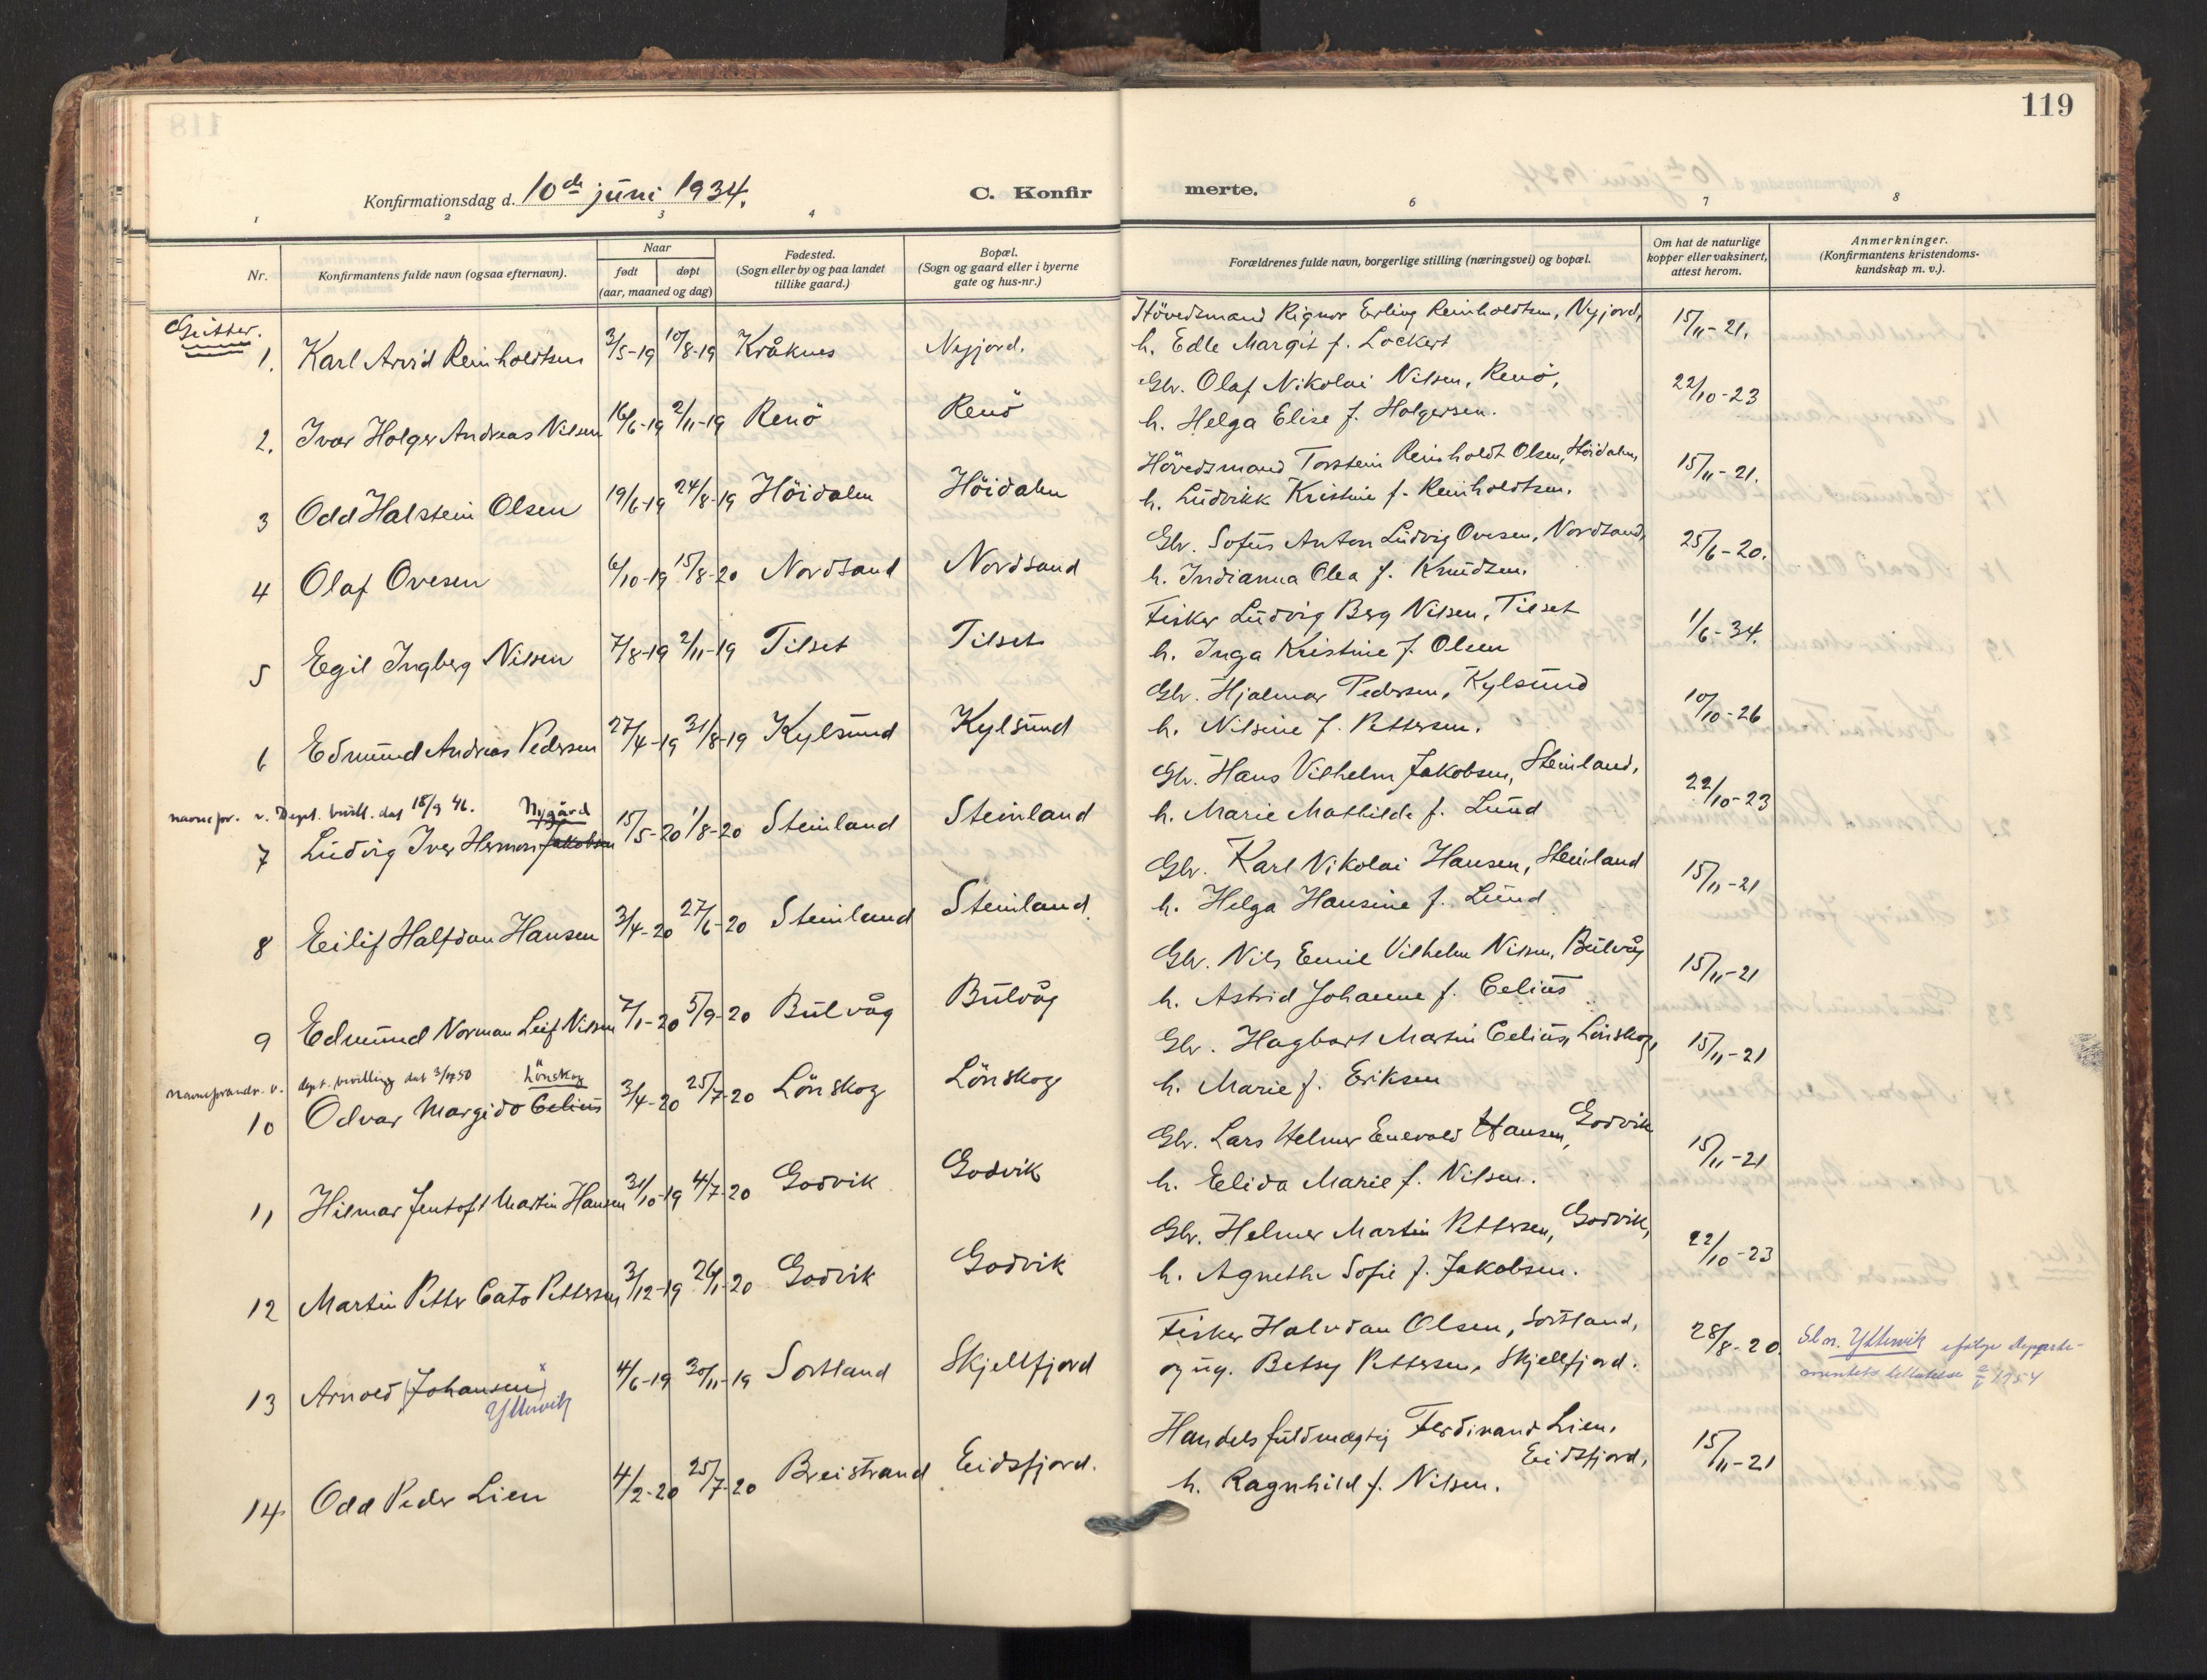 119
Konfirmationsdag d. 10de juni 1934.
C. Konfir
merte.
1 2 3 4 6 7 8
Nr.
Konfirmantens fulde navn (ogsaa efternavn).
Naar
født
døpt
(aar, maaned og dag)
Fødested.
(Sogn eller by og paa landet
tillike gaard.)
Bopæl.
(Sogn og gaard eller i byerne
gate og hus-nr.)
Forældrenes fulde navn, borgerlige stilling (næringsvei) og bopæl.
Om hat de naturlige
kopper eller vaksinert,
attest herom.
Anmerkninger.
(Konfirmantens kristendoms-
kundskap m. v.).
Gutter.
1. Karl Arvid Reinholdtsen 3/5-19 10/8-19 Kråknes Nyjord.
Hövedsmand Rignor Erling Reinholdtsen, Nyjord, 15/11-21.
h. Edle Margit f. Lockert
2. Ivar Holger Andreas Nilsen 16/6-19 2/11-19 Renö Renö
Gbr. Olaf Nikolai Nilsen, Renö, 22/10-23
h. Helga Elise f. Holgersen.
3 Odd Halstein Olsen 19/6-19 24/8-19 Höidalen Höidalen
Hövedsmand Torstein Reinholdt Olsen, Höidalen, 15/11-21.
h. Ludvikk Kristine f. Reinholdtsen.
4 Olaf Ovesen 6/10-19 15/8-20 Nordsand Nordsand
Gbr. Sofus Anton Ludvig Ovesen, Nordsand, 25/6-20.
h. Indianna Olea f. Knudsen.
5 Egil Ingberg Nilsen 7/8-19 2/11-19 Tilset Tilset
Fisker Ludvig Berg Nilsen, Tilset 1/6-34.
h. Inga Kristine f. Olsen
6 Edmund Andreas Pedersen 27/4-19 31/8-19 Kylsund Kylsund
Gbr. Hjalmar Pedersen, Kylsund 10/10-26
h. Nilsine f. Pettersen.
navnefor. v. Dept. bevill. dat 18/9 46. Nygård
7 Ludvig Iver Herman Jakobsen 15/5-20 1/8-20 Steinland Steinland
Gbr. Hans Vilhelm Jakobsen, Steinland, 22/10-23
h. Marie Mathilde f. Lund
8 Eilif Halfdan Hansen 3/4-20 27/6-20 Steinland Steinland.
Gbr. Karl Nikolai Hansen, Steinland 15/11-21
h. Helga Hansine f. Lund
9 Edmund Norman Leif Nilsen 7/1-20 5/9-20 Bulvåg Bulvåg
Gbr. Nils Emil Vilhelm Nilsen, Bulvåg 15/11-21
h. Astrid Johanne f. Celius
navneforandr. v. dept. bevilling dat 3/7 50 Lönskog
10 Odvar Margido Celius 3/4-20 25/7-20 Lönskog Lönskog
Gbr. Hagbart Martin Celius, Lönskog, 15/11-21
h. Marie f. Eriksen
11 Hilmar Jentoft Martin Hansen 31/10-19 4/7-20 Godvik Godvik
Gbr. Lars Helmer Enevold Hansen, Godvik 15/11-21
h. Elida Marie f. Nilsen.
12 Martin Petter Cato Pettersen 3/12-19 26/1-20 Godvik Godvik
Gbr. Helmer Martin Pettersen, Godvik, 22/10-23
h. Agnethe Sofie f. Jakobsen.
13 Arnold (Johansen) x 4/6-19 30/11-19 Sortland Skjellfjord
Yttervik
Fisker Halvdan Olsen, Sortland, 28/8-20. Sl.n. Yttervik ifølge departe-
og ug. Betsy Pettersen, Skjellfjord. mentets tillatelse 1954
14 Odd Peder Lien 4/2-20 25/7-20 Breistrand Eidsfjord.
Handelsfuldmægtig Ferdinand Lien, 15/11-21
Eidsfjord,
h. Ragnhild f. Nilsen.